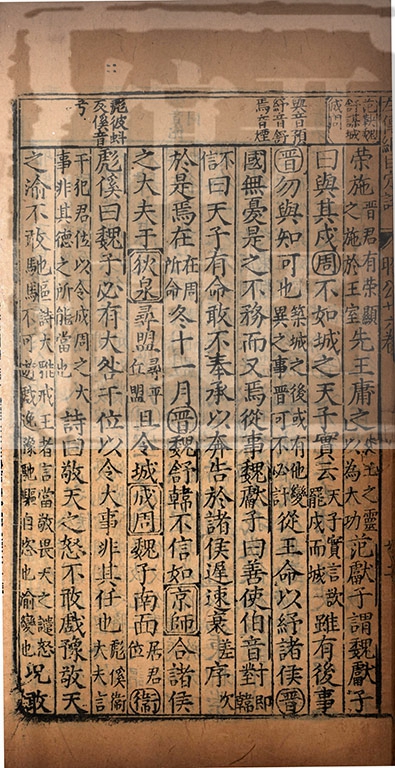 與音預
紓音舒
焉音煙
彪彼蚪
反傒音
兮
荣施晋君有荣顯之施於王室先王庸之先王之靈以為大功范獻子謂魏獻子
曰與其戍周不如城之天子實云天子實言欲罷戍而城雖有後事
晉勿與知可也築城之後或有他變異之事晉可不必計從王命以紓諸侯晉
國無憂是之不務而又焉從事魏獻子曰善使伯音對即韓
不信曰天子有命敢不奉承以奔告於諸侯遲速衰差序次
於是焉在在周所命冬十一月晉魏舒韓不信如京師合諸侯
之大夫于狄泉尋盟尋平丘盟且令城成周魏子南面居君位衛
彪傒曰魏子必有大咎干位以令大事非其任也彪傒衛大夫言
干犯君位以令成周之大事非其德之所能當也詩曰敬天之怒不敢戲豫敬天
之渝不敢馳驅詩大雅戒王者言當敬畏天之譴怒不可遊戲逸豫馳驅自恣也渝變也况敢